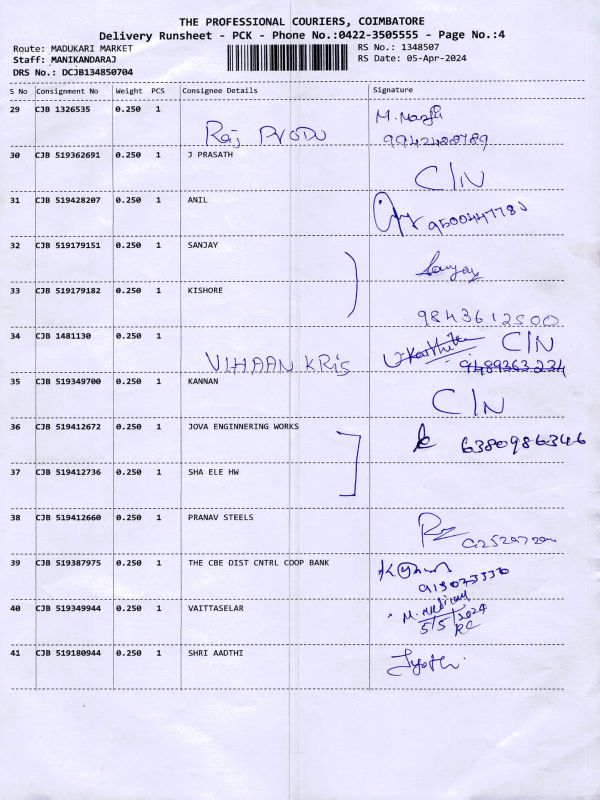 THE PROFESSIONAL COURIERS, COIMBATORE
Delivery Runsheet - PCK - Phone No.:0422-3505555 - Page No.:4
Route: MADUKARI MARKET RS No.: 1348507
Staff: MANIKANDARAJ RS Date: 05-Apr-2024
DRS No.: DCJB134850704
S No Consignment No Weight PCS Consignee Details Signature
29 CJB 1326535 0.250 1 Raj PRODU
30 CJB 519362691 0.250 1 J PRASATH C/N
31 CJB 519428207 0.250 1 ANIL
32 CJB 519179151 0.250 1 SANJAY Sanjay
33 CJB 519179182 0.250 1 KISHORE 9843612500
34 CJB 1481130 0.250 1 VIHAAN KRIS Karthik C/N
9489363234
35 CJB 519349700 0.250 1 KANNAN C/N
36 CJB 519412672 0.250 1 JOVA ENGINNERING WORKS 6380986346
37 CJB 519412736 0.250 1 SHA ELE HW
38 CJB 519412660 0.250 1 PRANAV STEELS
39 CJB 519387975 0.250 1 THE CBE DIST CNTRL COOP BANK
40 CJB 519349944 0.250 1 VAITTASELAR 5/5/2024
41 CJB 519180944 0.250 1 SHRI AADTHI Jyothi